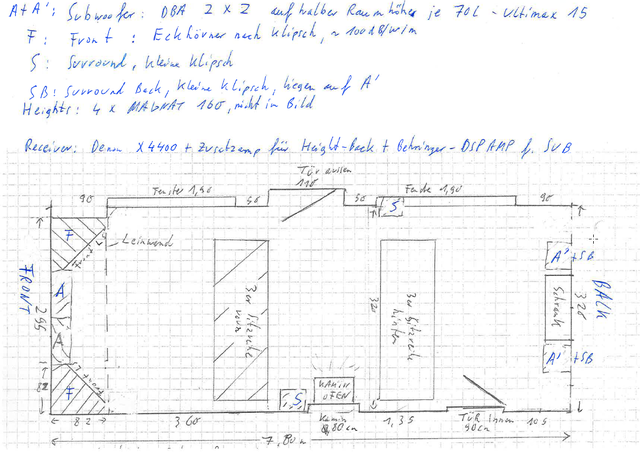 A+A': Subwoofer: DBA 2x2 auf halber Raumhöhe, je 70L - Ultimax 15
F: Front: Eckhörner nach Klipsch, ~100dB/W/m
S: Surround, kleine Klipsch
SB: Surround Back, kleine Klipsch, liegen auf A'
Heights: 4 x MAGNAT 160, nicht im Bild
Receiver: Denon X4400 + Zusatzamp für Height-Back + Behringer-DSPAMP f. SUB
Tür aussen
90 Fenster 1,90 50 110 50 1,90 90
S
F
Leinwand
A' + SB
FRONT
A
3er Sitzreihe
3er Sitzreihe
hinten
320
Schrank
320
BACK
A
A' + SB
82
F
S
KAMIN
OFEN
82
360
Kamin
80cm
1,35
TÜR Innen
90cm
105
7,80m